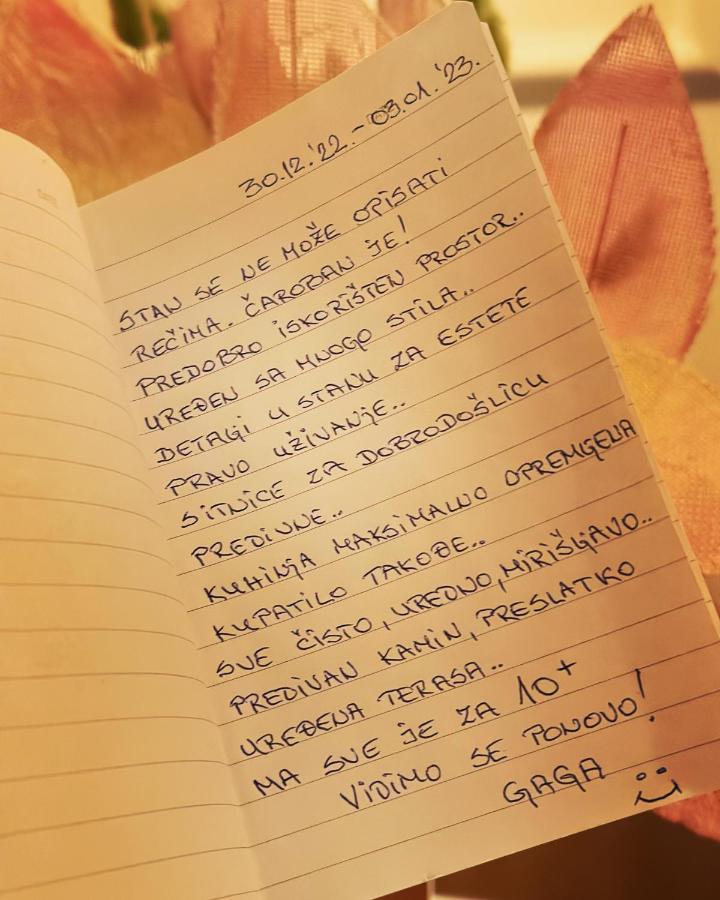 30.12.'22.-03.01.'23.
STAN SE NE MOŽE OPISATI
REČIMA. ČAROBAN JE!
PREDOBRO ISKORIŠTEN PROSTOR..
UREĐEN SA MNOGO STILA..
DETALJI U STANU ZA ESTETE
PRAVO UŽIVANJE..
SITNICE ZA DOBRODOŠLICU
PREDIVNE..
KUHINJA MAKSIMALNO OPREMLJENA
KUPATILO TAKOĐE..
SVE ČISTO, UREDNO, MIRIŠLJAVO..
PREDIVAN KAMIN, PRESLATKO
UREĐENA TERASA..
MA SVE JE ZA 10+
VIDIMO SE PONOVO!
GAGA